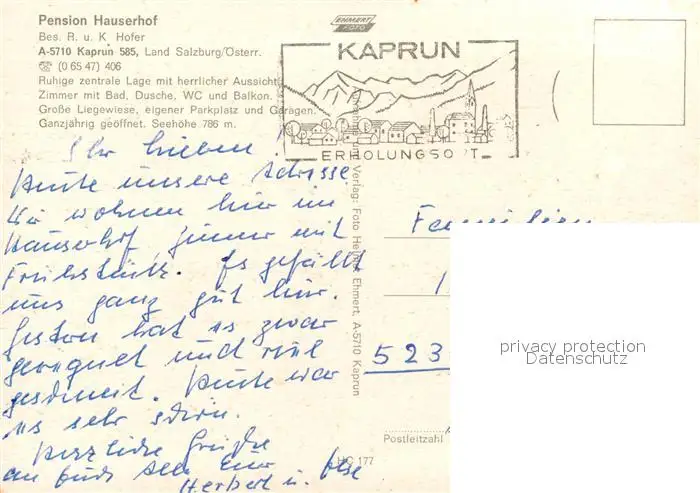 Pension Hauserhof
Bes. R. u. K Hofer
A-5710 Kaprun 585, Land Salzburg/Österr.
☏ (0 65 47) 406
Ruhige zentrale Lage mit herrlicher Aussicht
Zimmer mit Bad, Dusche, WC und Balkon.
Große Liegewiese, eigener Parkplatz und Garagen.
Ganzjährig geöffnet. Seehöhe 786 m.
EHMERT
FOTO
KAPRUN
ERHOLUNGSORT
Ihr Lieben!
Heute unsere Adresse
Wir wohnen hier im
Hauserhof, Zimmer mit
Frühstück. Es gefällt
uns ganz gut hier.
Gestern hat es zwar
geregnet und viel
geschneit. Heute war
es sehr schön.
Herzliche Grüße
an Euch alle Eure
Herbert u. Ilse
Verlag: Foto Helmut Ehmert, A-5710 Kaprun
Familien
523
Postleitzahl
HC 177
privacy protection
Datenschutz